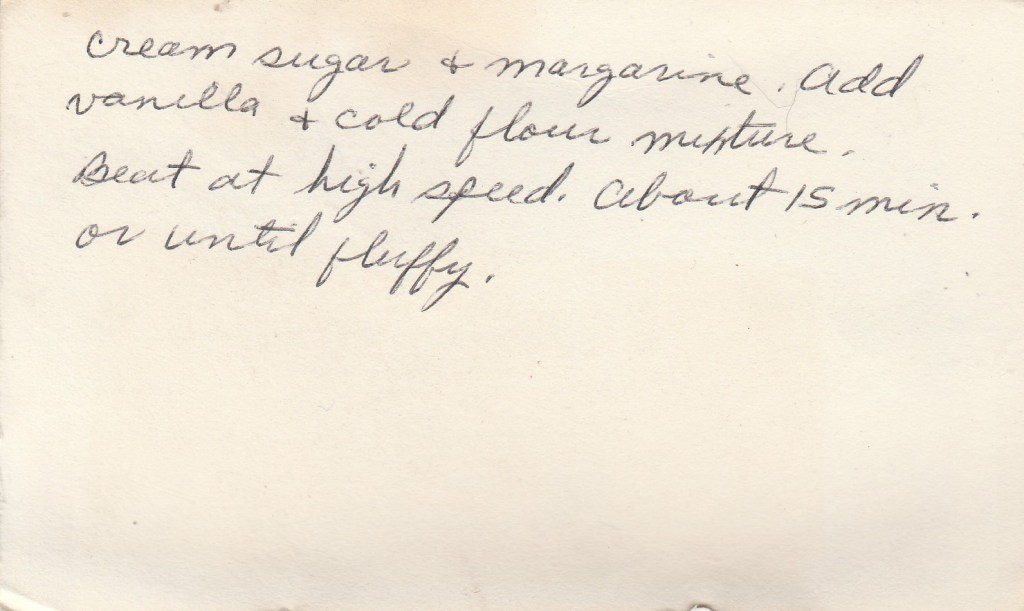 cream sugar & margarine. Add
vanilla & cold flour mixture.
Beat at high speed. About 15 min.
or until fluffy.